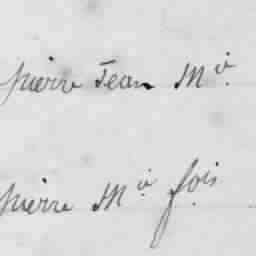 pierre Jean M.ie
pierre M.ie f.ois